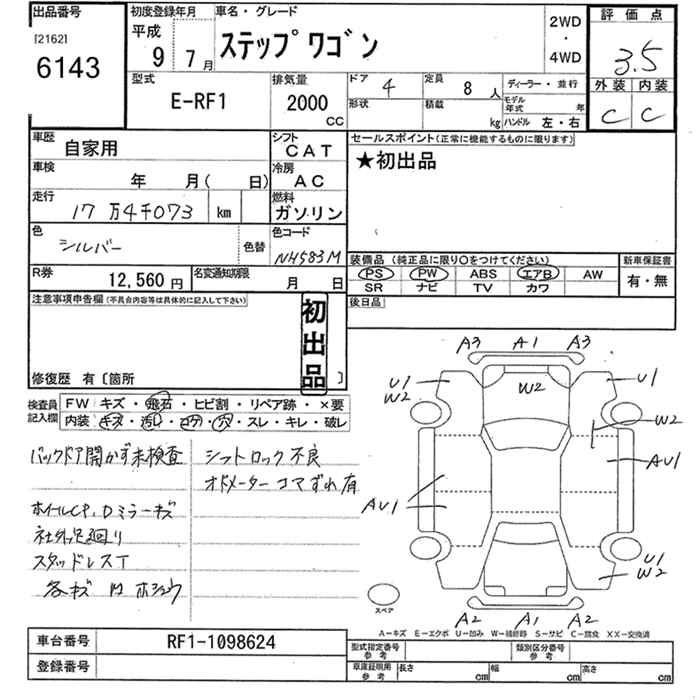 出品番号
[2162]
6143
初度登録年月
平成
9年7月
車名・グレード
ステップワゴン
2WD
・
4WD
評価点
3.5
外装 内装
C C
型式
E-RF1
排気量
2000
CC
ドア 4
定員 8人
ディーラー・並行
形状
積載 kg
モデル年式 年
ハンドル 左・右
車歴
自家用
シフト
CAT
セールスポイント(正常に機能するものに限ります)
★初出品
車検
年 月( 日)
冷房
AC
走行
17万4千073 km
燃料
ガソリン
色
シルバー
色替
色コード
NH583M
装備品(純正品に限り○をつけてください)
新車保証書
PS PW ABS エアB AW
SR ナビ TV カワ
有・無
R券
12,560円
名変通知期限
月 日
後日品
注意事項申告欄(不具合内容等は具体的に記入して下さい)
初出品
修復歴 有〔箇所 〕
検査員記入欄
FW キズ・飛石・ヒビ割・リペア跡・×要
内装 キズ・汚れ・コゲ・穴・スレ・キレ・破レ
バックドア開かず未検査
シフトロック不良
オドメーターコマずれ有
ホイールCP、Dミラーキズ
社外足廻り
スタッドレスT
各キズ 凹 ホシュウ
A3 A1 A3
U1
W2
W2
U1
W2
AU1
AU1
U1
W2
A2 A1 A2
スペア
A-キズ E-エクボ U-凹み W-補修跡 S-サビ C-腐食 XX-交換済
車台番号
RF1-1098624
型式指定番号
参考
類別区分番号
参考
登録番号
車庫証明用
参考
長さ cm 幅 cm 高さ cm